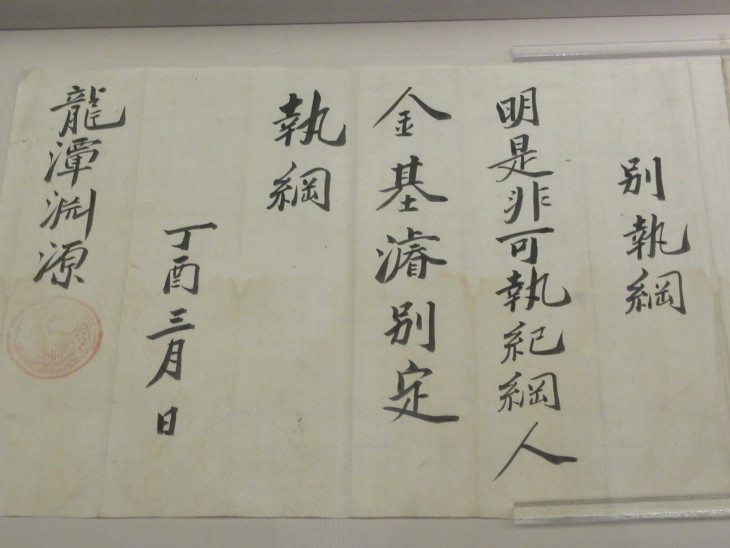 別執綱
明是非可執紀綱人
金基濬別定
執綱
丁酉三月 日
龍潭淵源